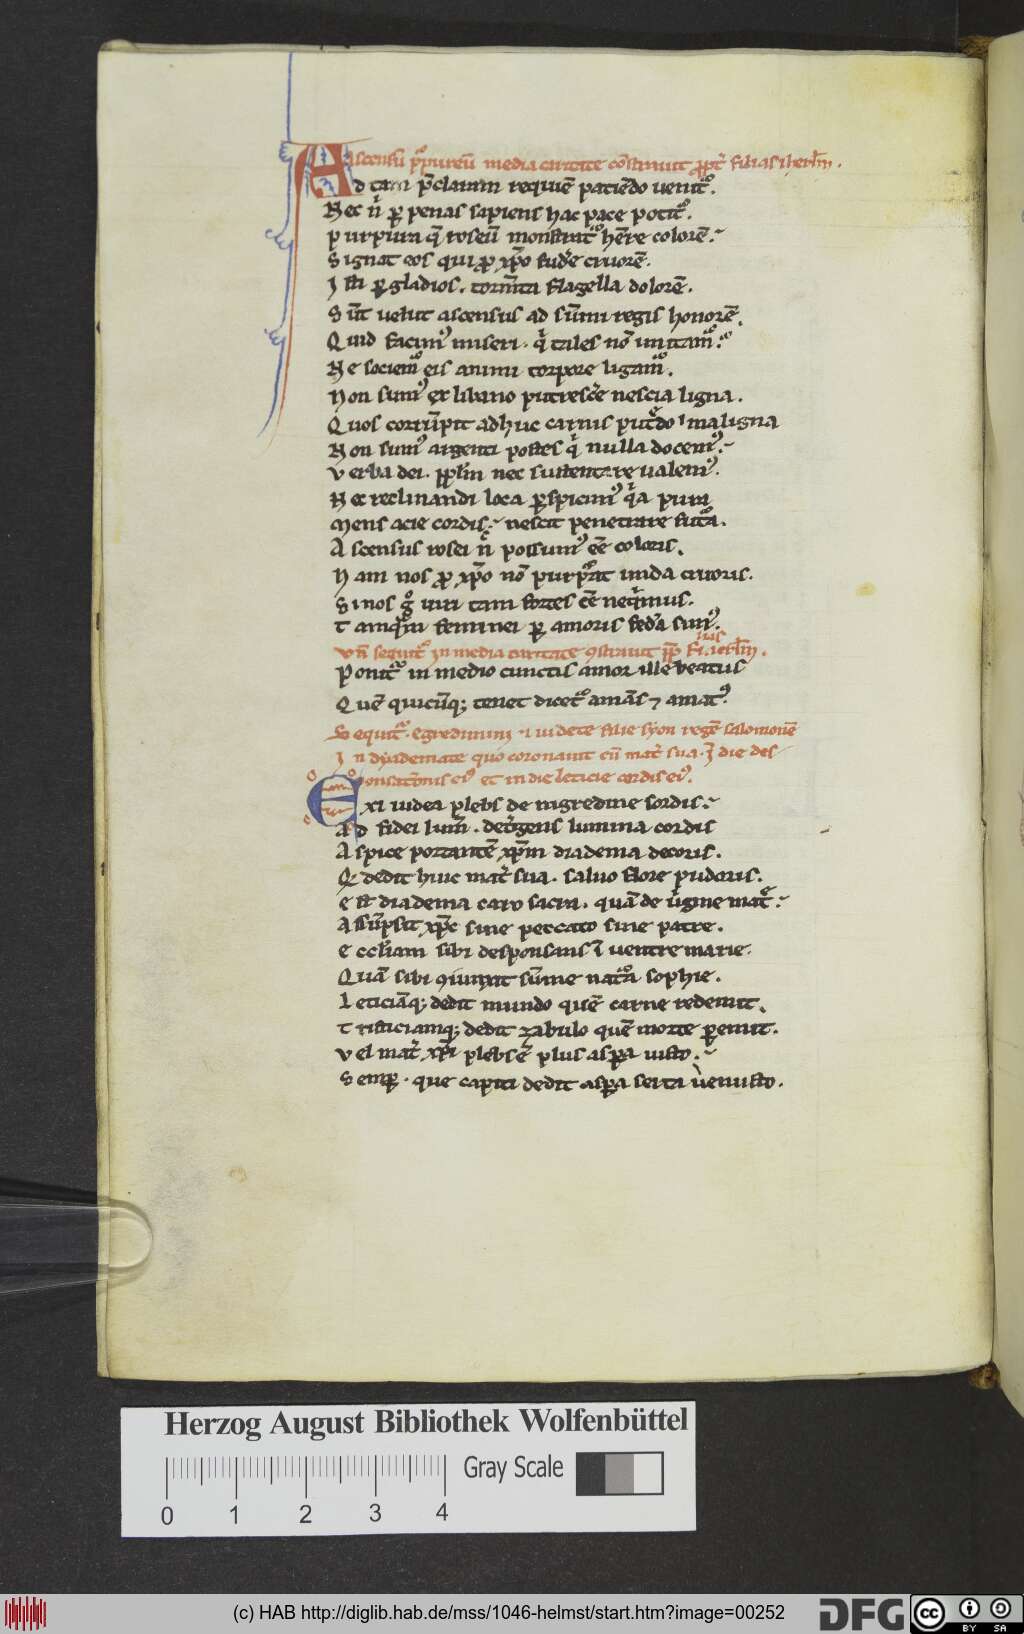 Ascensū p̄pureū media caritate cōstrauit ꝓpt̄ filias ihərl̄m.
Ad tam p̄claram requiē patiēdo uenit᷑.
Nec n̄ ꝑ penas sapiens hac pace potit᷑.
purpura q̄ roseū monstrat᷑ hēre colorē.
Signat eos qui ꝓ xp̄o fudēre cruorē.
Isti ꝑ gladios. torm̄ta flagella dolorē.
Sūt uelut ascensus ad sūmi regis honorē.
Quid facimꝰ miseri. q̄ tales nō imitam᷑.
Ne sociem᷑ eis animi torpore ligam᷑.
Non sumꝰ ex libano putresc̄e nescia ligna.
Quos corrūpit adhuc carnis putēdo maligna
Non sumꝰ argenti postes q̄ nulla docemꝰ.
Verba dei. ppl̄m nec sustentare ualemꝰ.
Nec reclinandi loca ꝑspicimꝰ q̄a pura
Mens acie cordis. nescit penetrare fut᷑a.
Ascensus rosei n̄ possumꝰ eē coloris.
Nam nos ꝓ xp̄o nō purp̄at unda cruoris.
Sinos g̊ uiri tam fortes eē neq̄mus.
Tamq̄m feminei ꝑ amoris fed̄a simꝰ.
Vn̄ sequit᷑ In media caritate ꝯstrauit ꝓp̄ filias ierl̄m.
Ponit᷑ in medio cunctis amor ille beatus
Quē quicūqꝫ tenet dicet᷑ amās ⁊ amatꝰ.
Sequit᷑. egredimini ⁊ uidete filie syon regē salomonē
In dyademate quo coronauit eū mat̄ sua. ī die des
ponsatōnis eiꝰ et in die leticie cordis eiꝰ.
Exi iudea plebs de nigredine sordis.
Ad fidei lum̄. det̄gens lumina cordis
Aspice portantē xp̄m diadema decoris.
Q̄ dedit huic mat̄ sua. saluo flore pudoris.
Est diadema caro sacra. quā de ūgine matē.
Assūpsit xp̄c sine peccato sine patre.
Eccl̄iam sibi desponsans ī uentre marie.
Quā sibi ꝯiunxit sūme nat᷑a sophie.
Leticiāqꝫ dedit mundo quē carne redemit.
Tristiciamqꝫ dedit zabulo quē morte ꝑemit.
Vel mat̄ xp̄i plebs ē plus aspꝑa iusto.
Semꝑ. que capiti dedit asꝑa serta uenusto.
Herzog August Bibliothek Wolfenbüttel
Gray Scale
0 1 2 3 4
(c) HAB http://diglib.hab.de/mss/1046-helmst/start.htm?image=00252
DFG
cc BY SA